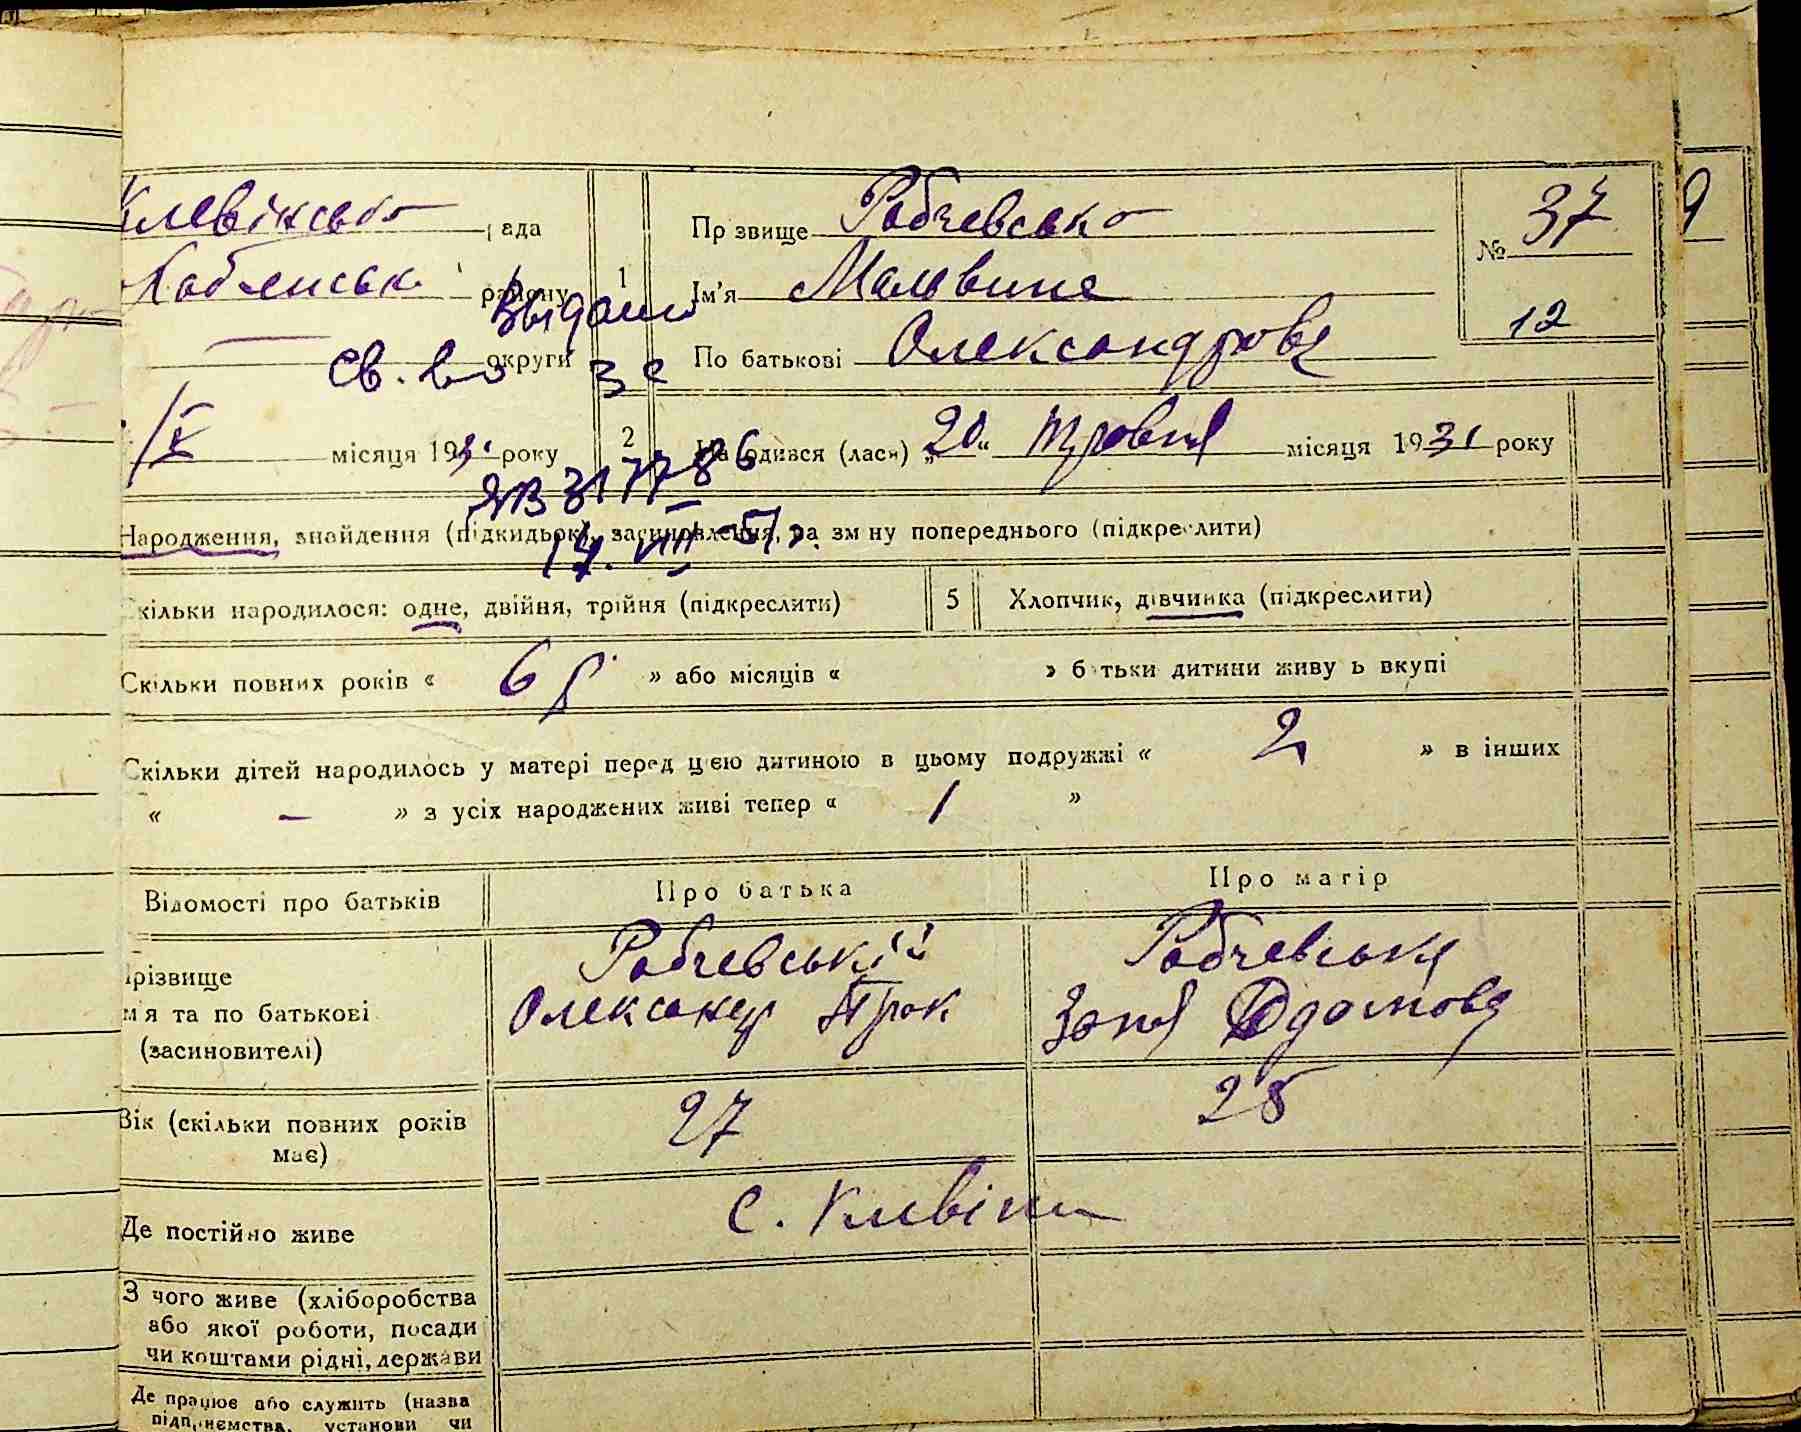 Клевінсько рада
району
округи
1
Прізвище Рабчевсько
Ім'я Мальвина
По батькові Олександровa
№ 37
12
9
Выдано
св. во за
ЯВ 317786
14. VIII - 51 г.
IX місяця 1931 року
2
На одився (лася) „20" травня місяця 1931 року
Народження, знайдення (підкидьок), засиновлення, на зм ну попереднього (підкреслити)
Скільки народилося: одне, двійня, трійня (підкреслити)
5
Хлопчик, дівчинка (підкреслити)
Скільки повних років « 6 р » або місяців « » б тьки дитини живу ь вкупі
Скільки дітей народилось у матері перед цією дитиною в цьому подружжі « 2 » в інших
« – » з усіх народжених живі тепер « 1 »
Відомості про батьків
Про батька
Про матір
Прізвище
м'я та по батькові
(засиновителі)
Рабчевський
Олександр Прок
Рабчевська
Адамова
Вік (скільки повних років
має)
27
28
Де постійно живе
с. Клевіни
З чого живе (хліборобства
або якої роботи, посади
чи коштами рідні, держави
Де працює або служить (назва
підприємства, установи чи